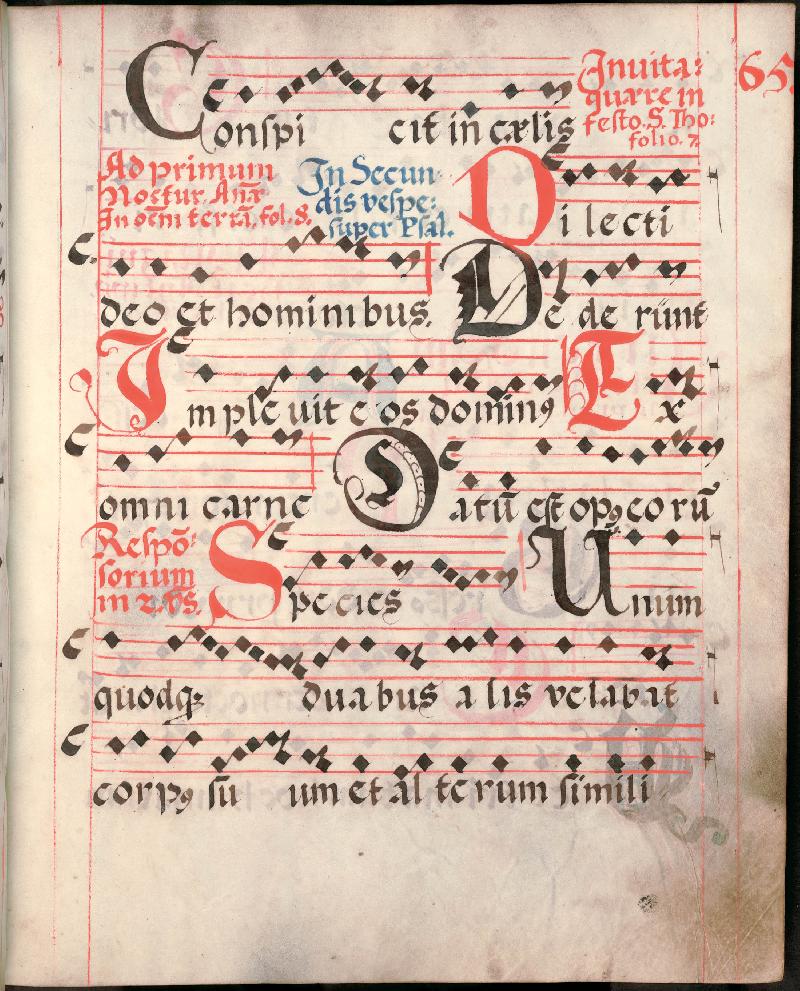 65.
Conspi cit in cælis
Inuita:
quære in
festo. S. Tho:
folio. 7.
Ad primum
Noctur. Anæ
In oēm terrā, fol. 8.
In Secun
dis vespe:
super Psal.
Di lecti
deo et hominibus.
De de runt
Imple uit e os dominꝰ Ex
omni carne Datū est opꝰ eo rū
Respō:
sorium
Species Unum
quodqꝫ duabus a lis velabat
corpꝰ su um et al terum simili